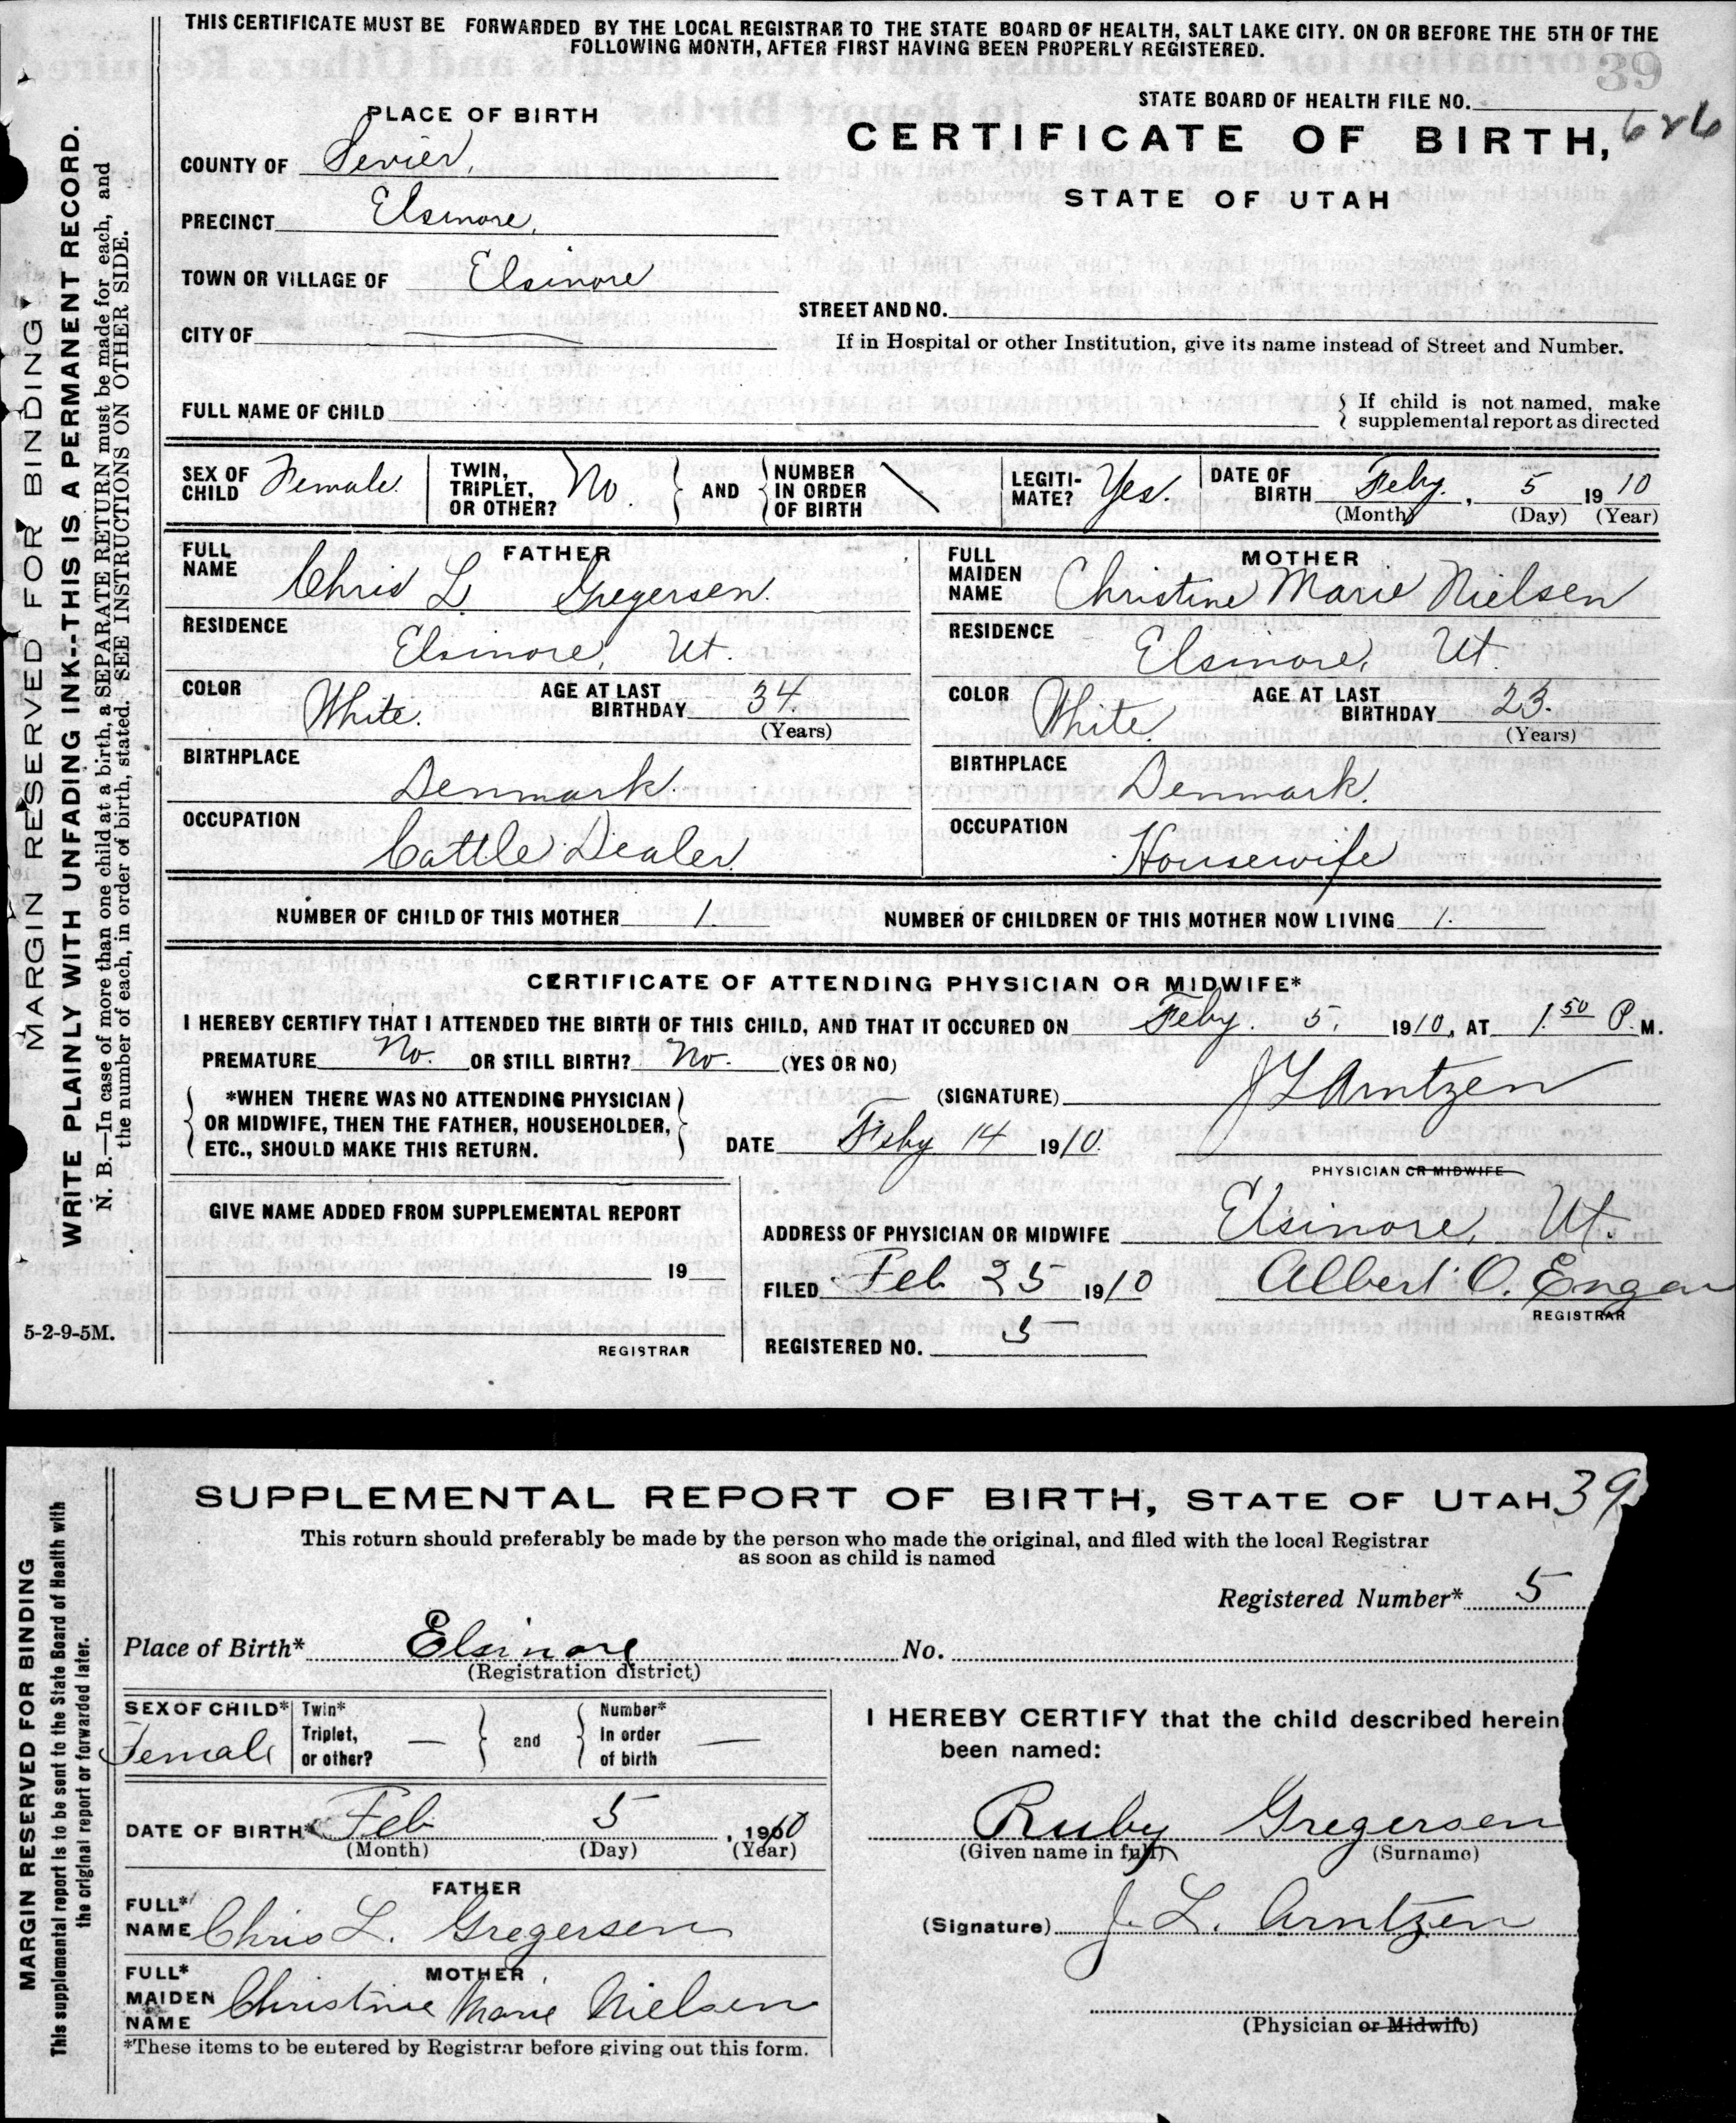 THIS CERTIFICATE MUST BE FORWARDED BY THE LOCAL REGISTRAR TO THE STATE BOARD OF HEALTH, SALT LAKE CITY. ON OR BEFORE THE 5TH OF THE
FOLLOWING MONTH, AFTER FIRST HAVING BEEN PROPERLY REGISTERED.
39
STATE BOARD OF HEALTH FILE NO.
626
PLACE OF BIRTH
CERTIFICATE OF BIRTH,
STATE OF UTAH
COUNTY OF Sevier,
PRECINCT Elsinore,
TOWN OR VILLAGE OF Elsinore
STREET AND NO.
CITY OF
If in Hospital or other Institution, give its name instead of Street and Number.
FULL NAME OF CHILD
{ If child is not named, make
supplemental report as directed
SEX OF CHILD Female. TWIN, TRIPLET, OR OTHER? No } AND { NUMBER IN ORDER OF BIRTH \ LEGITI-MATE? Yes. DATE OF BIRTH Feby., 5 1910
(Month) (Day) (Year)
FATHER
FULL NAME Chris L Gregersen.
RESIDENCE Elsinore, Ut.
COLOR White. AGE AT LAST BIRTHDAY 34.
(Years)
BIRTHPLACE Denmark.
OCCUPATION Cattle Dealer
MOTHER
FULL MAIDEN NAME Christine Marie Nielsen
RESIDENCE Elsinore, Ut.
COLOR White. AGE AT LAST BIRTHDAY 23.
(Years)
BIRTHPLACE Denmark.
OCCUPATION Housewife
NUMBER OF CHILD OF THIS MOTHER 1. NUMBER OF CHILDREN OF THIS MOTHER NOW LIVING 1.
CERTIFICATE OF ATTENDING PHYSICIAN OR MIDWIFE*
I HEREBY CERTIFY THAT I ATTENDED THE BIRTH OF THIS CHILD, AND THAT IT OCCURED ON Feby. 5, 1910, AT 1.50 P. M.
PREMATURE No. OR STILL BIRTH? No. (YES OR NO)
{ *WHEN THERE WAS NO ATTENDING PHYSICIAN
OR MIDWIFE, THEN THE FATHER, HOUSEHOLDER,
ETC., SHOULD MAKE THIS RETURN. }
(SIGNATURE) J L Arntzen
DATE Feby 14 1910.
PHYSICIAN OR MIDWIFE
GIVE NAME ADDED FROM SUPPLEMENTAL REPORT
19
REGISTRAR
ADDRESS OF PHYSICIAN OR MIDWIFE Elsinore, Ut.
FILED Feb 25 1910 Albert O. Engar
REGISTRAR
REGISTERED NO. 5
5-2-9-5M.
MARGIN RESERVED FOR BINDING
WRITE PLAINLY WITH UNFADING INK--THIS IS A PERMANENT RECORD.
N. B.—In case of more than one child at a birth, a SEPARATE RETURN must be made for each, and
the number of each, in order of birth, stated. SEE INSTRUCTIONS ON OTHER SIDE.
SUPPLEMENTAL REPORT OF BIRTH, STATE OF UTAH 39
This return should preferably be made by the person who made the original, and filed with the local Registrar
as soon as child is named
Registered Number* 5
Place of Birth* Elsinore No.
(Registration district)
SEX OF CHILD* Female Twin* Triplet, or other? — } and { Number* In order of birth —
DATE OF BIRTH* Feb 5, 1910
(Month) (Day) (Year)
FATHER
FULL* NAME Chris L. Gregersen
MOTHER
FULL* MAIDEN NAME Christine Marie Nielsen
*These items to be entered by Registrar before giving out this form.
I HEREBY CERTIFY that the child described herein
been named:
Ruby Gregersen
(Given name in full) (Surname)
(Signature) J. L. Arntzen
(Physician or Midwife)
MARGIN RESERVED FOR BINDING
This supplemental report is to be sent to the State Board of Health with
the original report or forwarded later.